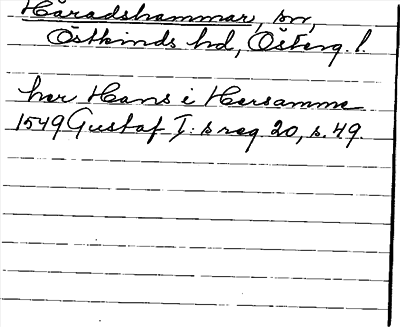 Häradshammar, sn,
Östkinds hd, Österg. l.
her Hans i Hersamme
1549 Gustaf I:s reg. 20, s. 49.